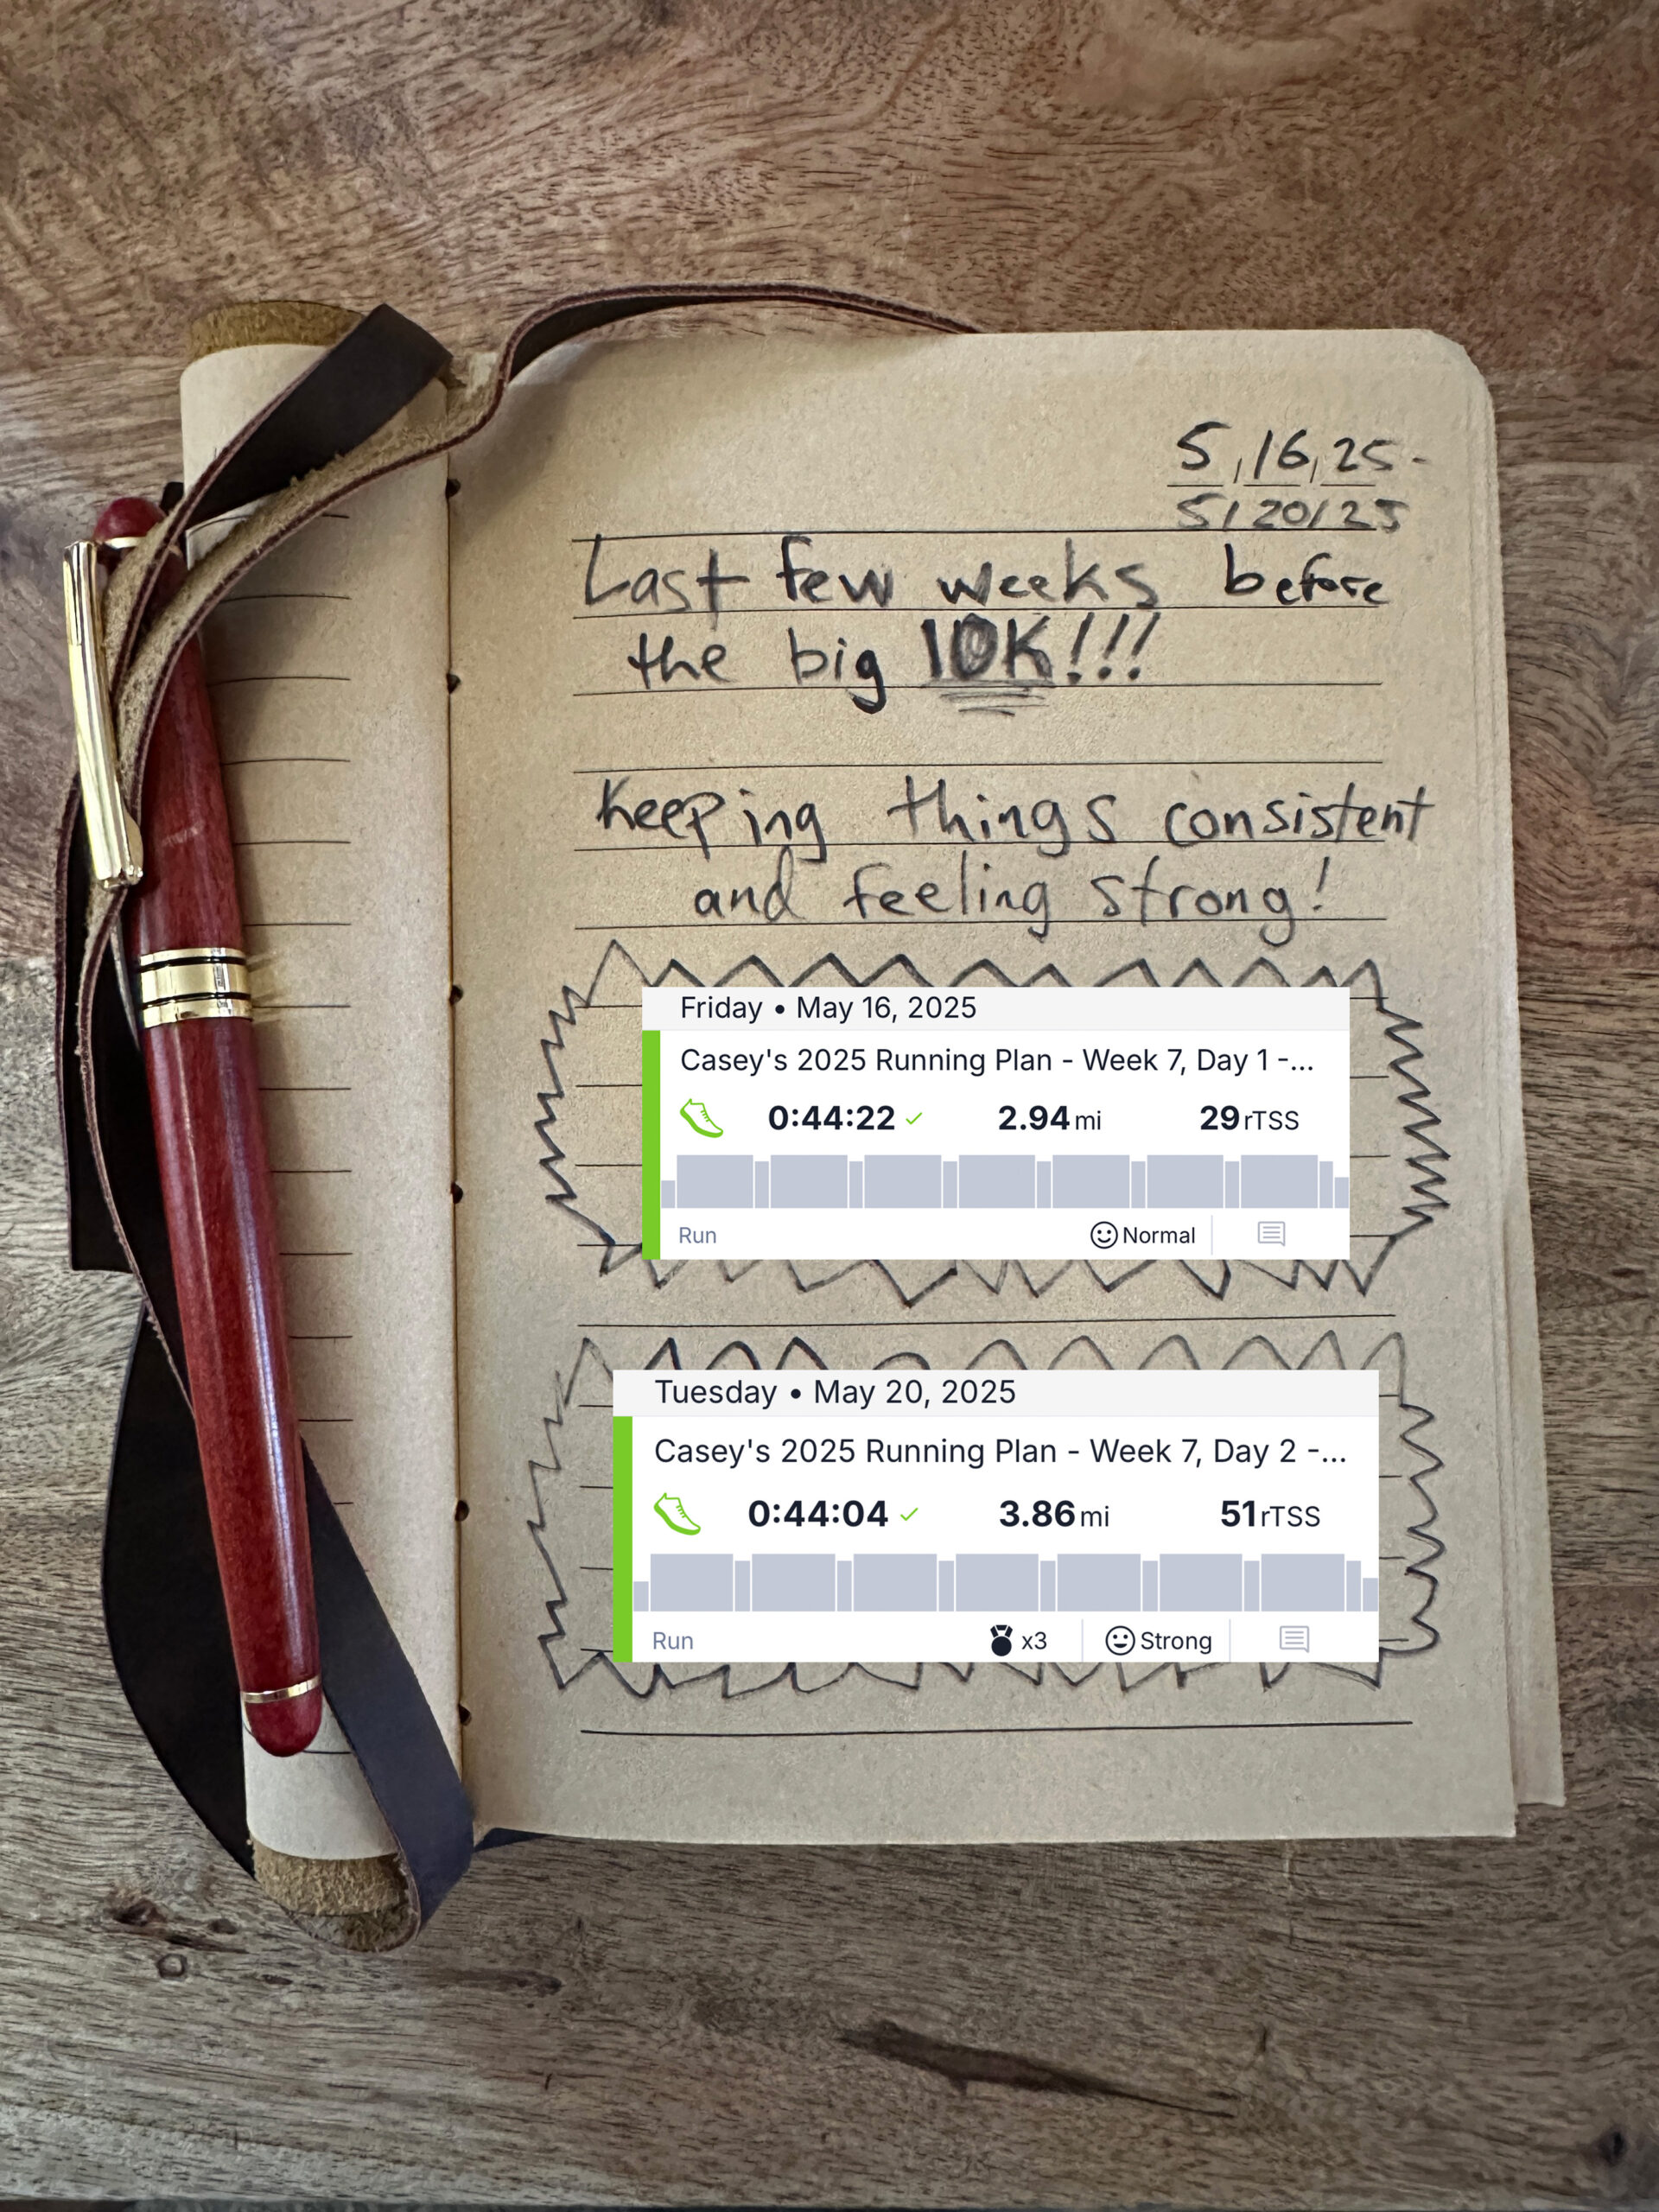 5/16/25-
5/20/25
Last few weeks before
the big 10K!!!
Keeping things consistent
and feeling strong!
Friday • May 16, 2025
Casey's 2025 Running Plan - Week 7, Day 1 -...
0:44:22 2.94 mi 29 rTSS
Run Normal
Tuesday • May 20, 2025
Casey's 2025 Running Plan - Week 7, Day 2 -...
0:44:04 3.86 mi 51 rTSS
Run x3 Strong